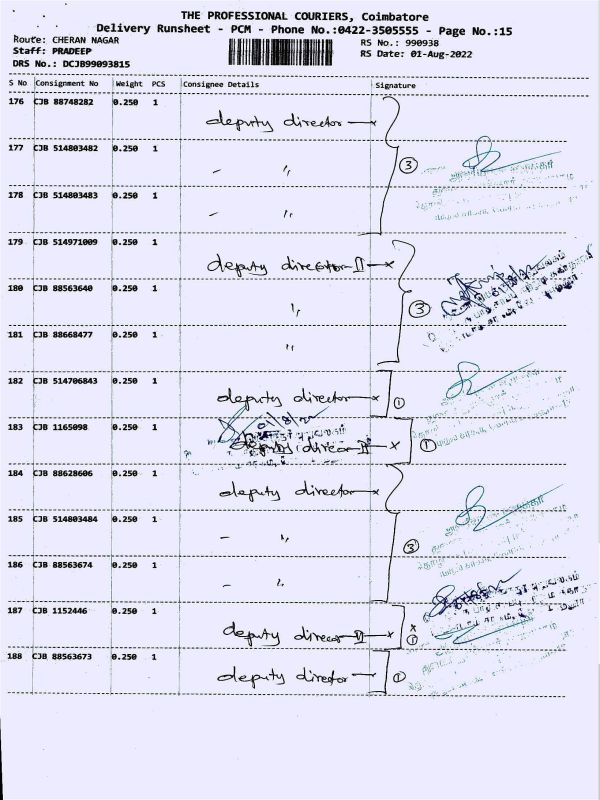 THE PROFESSIONAL COURIERS, Coimbatore
Delivery Runsheet - PCM - Phone No.:0422-3505555 - Page No.:15
Route: CHERAN NAGAR
RS No.: 990938
Staff: PRADEEP
RS Date: 01-Aug-2022
DRS No.: DCJB99093815
S No Consignment No Weight PCS Consignee Details Signature
176 CJB 88748282 0.250 1
deputy director x
177 CJB 514803482 0.250 1
- "
3
178 CJB 514803483 0.250 1
- "
179 CJB 514971009 0.250 1
deputy director II x
180 CJB 88563640 0.250 1
"
3
181 CJB 88668477 0.250 1
"
182 CJB 514706843 0.250 1
deputy director x
1
183 CJB 1165098 0.250 1
deputy direcor II x
1
184 CJB 88628606 0.250 1
deputy director x
185 CJB 514803484 0.250 1
- "
3
186 CJB 88563674 0.250 1
- "
187 CJB 1152446 0.250 1
deputy direcor II x
x
1
188 CJB 88563673 0.250 1
deputy director x
1